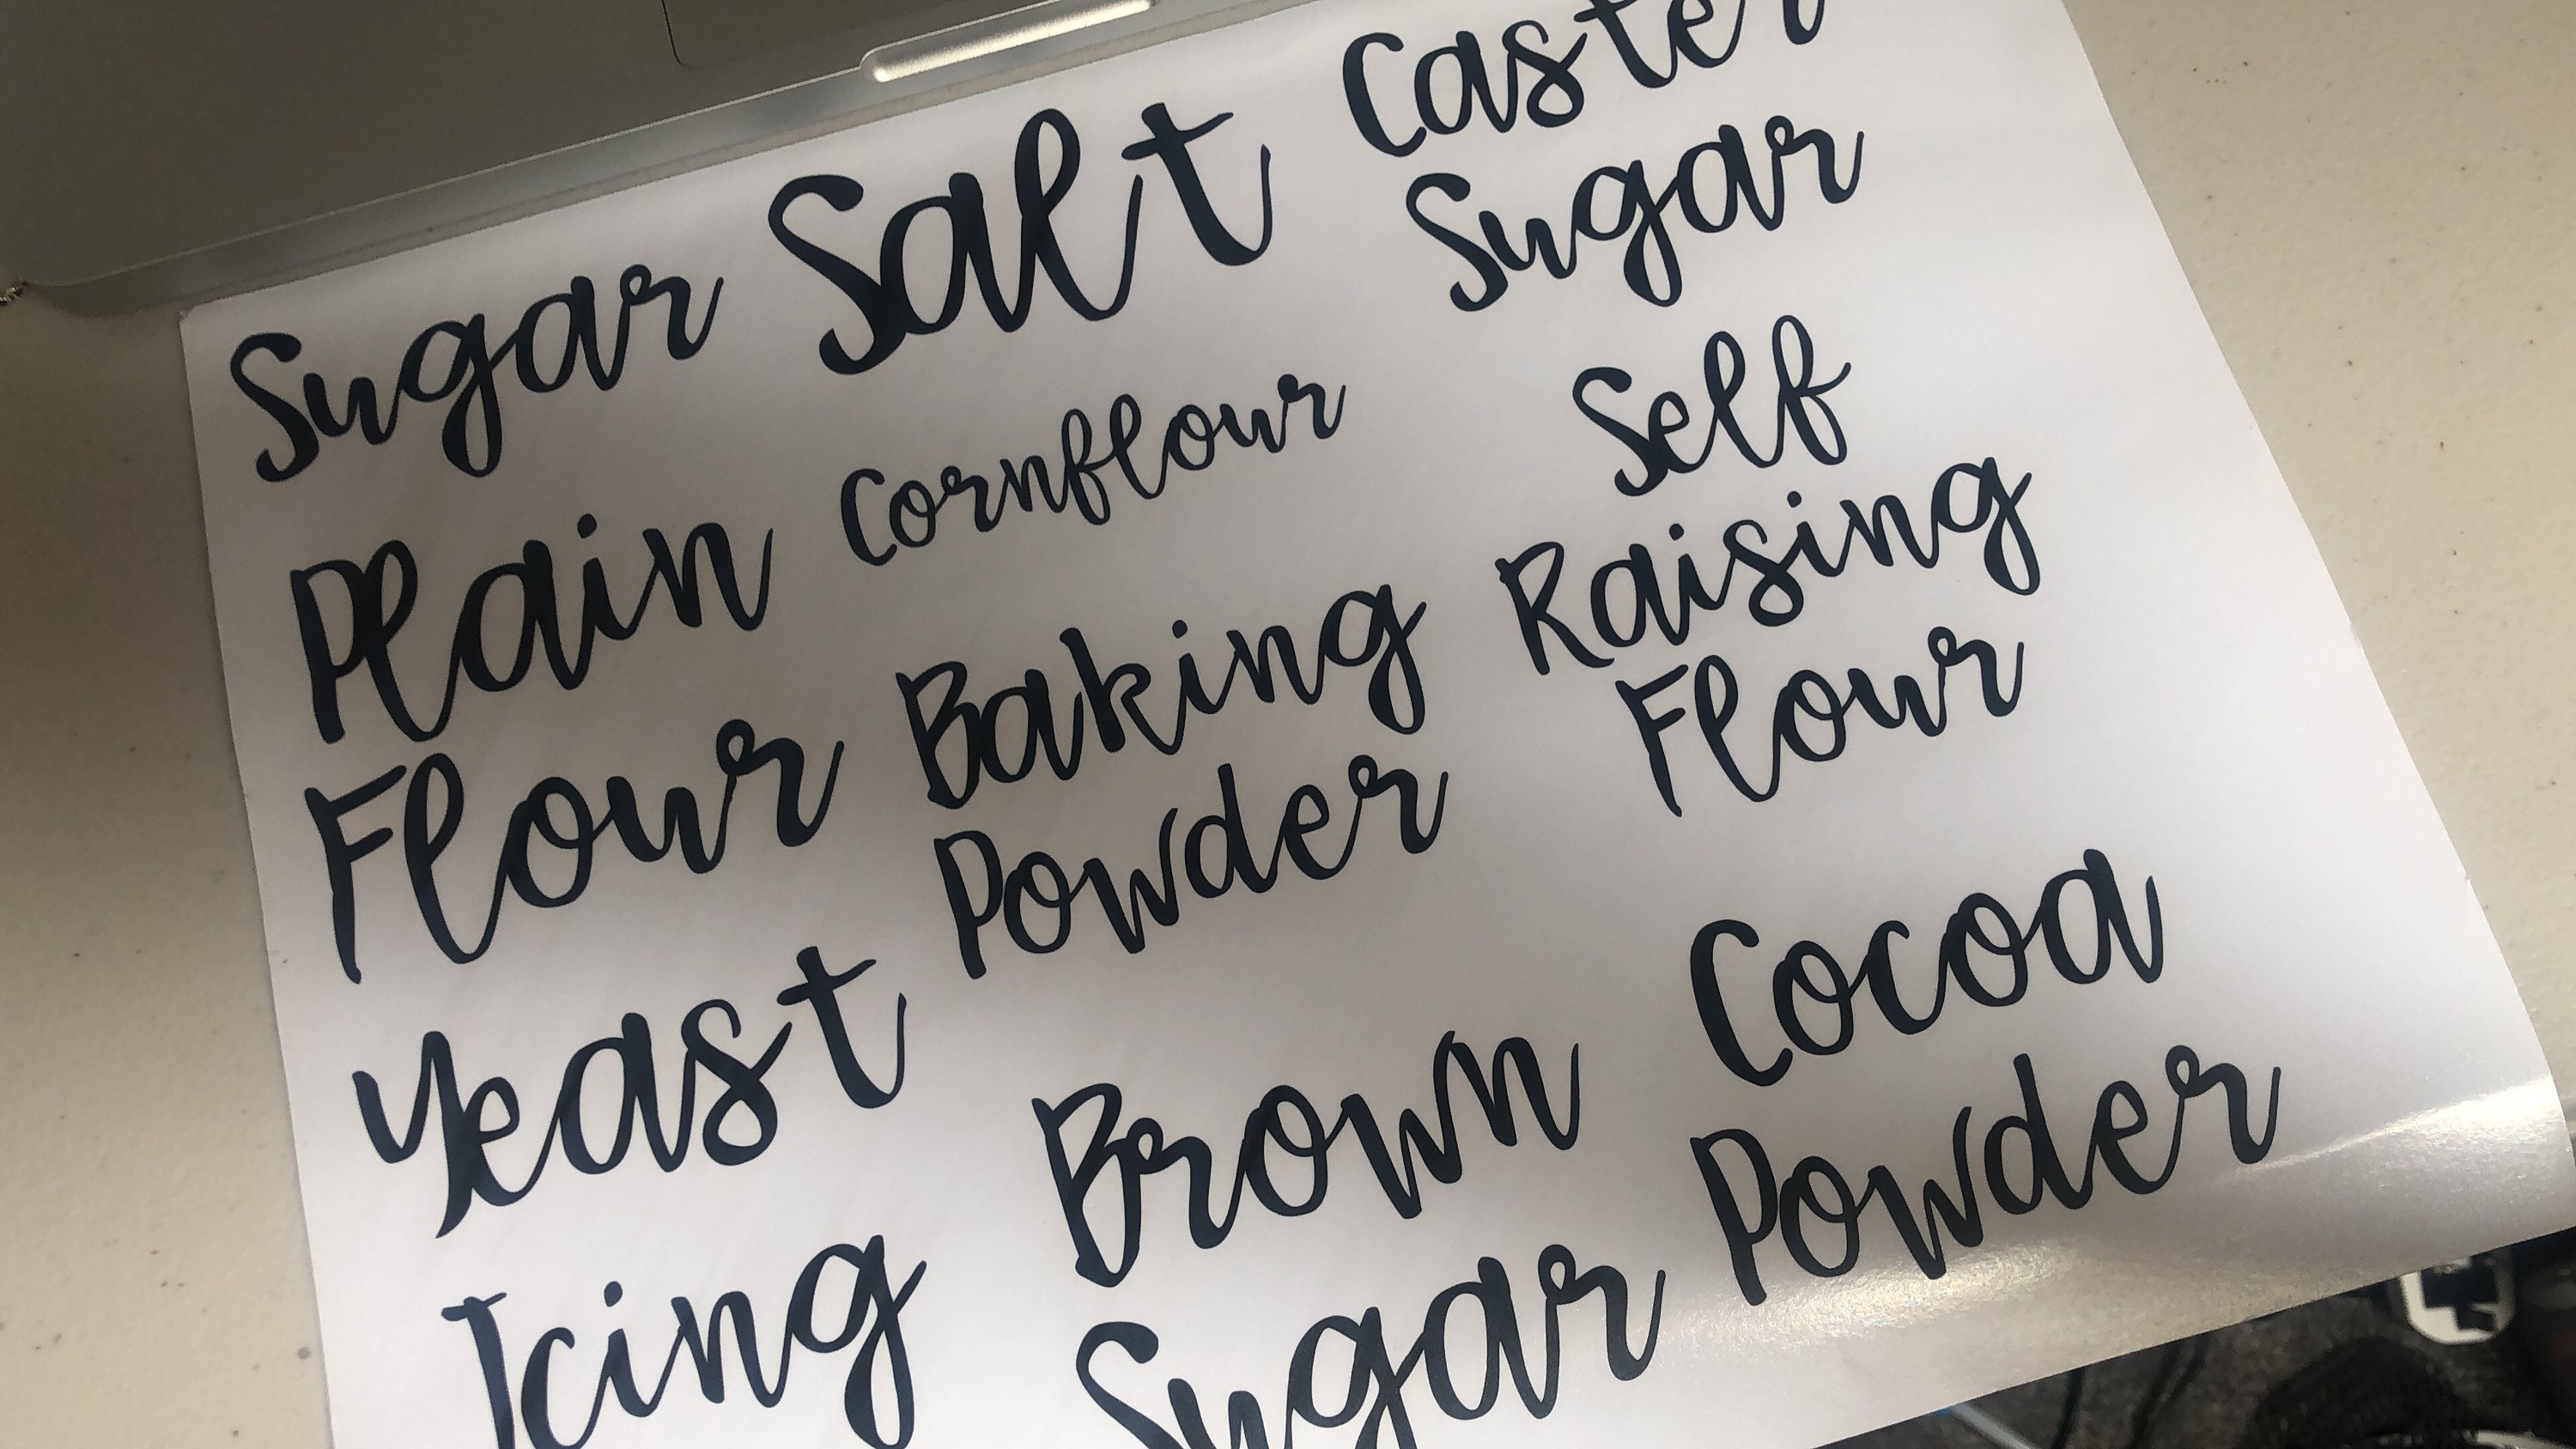 Sugar
Salt
Caster
Sugar
Plain
Flour
Cornflour
Self
Raising
Flour
Baking
Powder
Yeast
Brown
Sugar
Cocoa
Powder
Icing